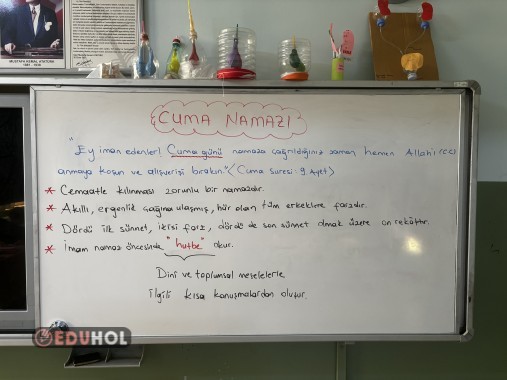 MUSTAFA KEMAL ATATÜRK
1881 - 1938
CUMA NAMAZI
"Ey iman edenler! Cuma günü namaza çağrıldığınız zaman hemen Allah'ı (cc)
anmaya koşun ve alışverişi bırakın." (Cuma suresi: 9. Ayet)
* Cemaatle kılınması zorunlu bir namazdır.
* Akıllı, ergenlik çağına ulaşmış, hür olan tüm erkeklere farzdır.
* Dördü ilk sünnet, ikisi farz, dördü de son sünnet olmak üzere on rekâttır.
* İmam namaz öncesinde "hutbe" okur.
Dini ve toplumsal meselelerle
ilgili kısa konuşmalardan oluşur.
EDUHOL